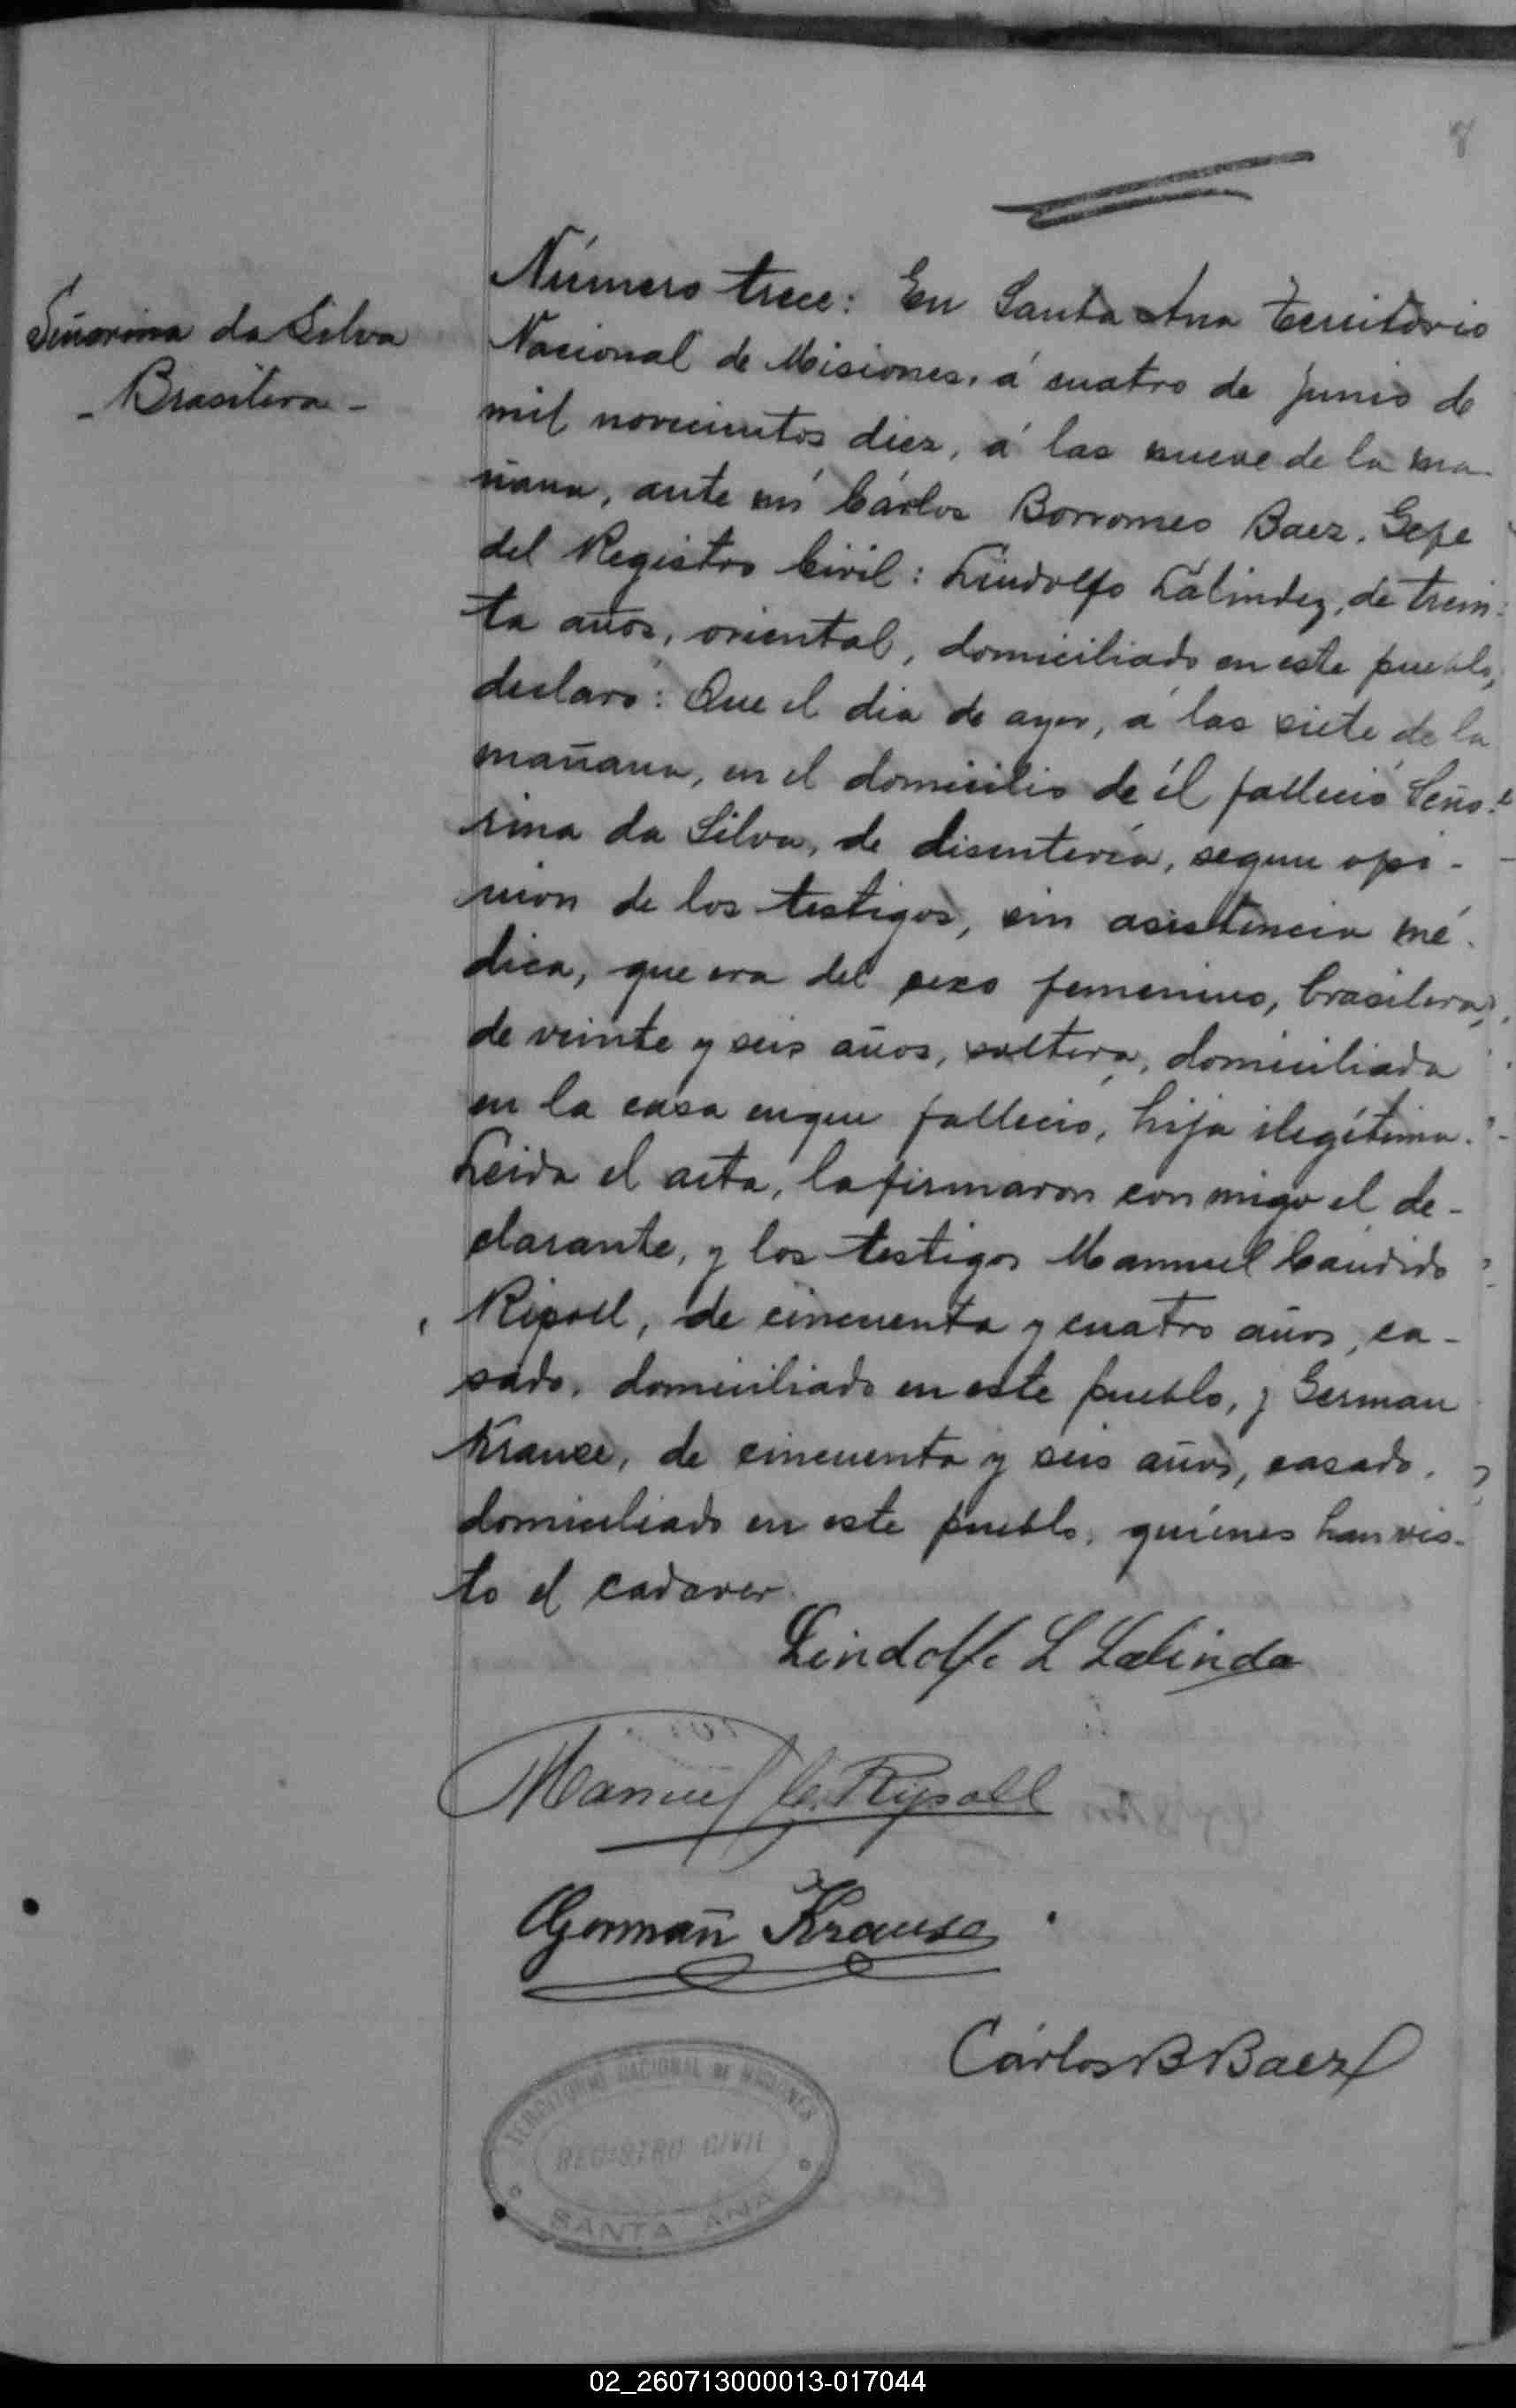 8
Señorina da Silva
- Brasilera -
Número trece: En Santa Ana Territorio
Nacional de Misiones, á cuatro de Junio de
mil novecientos diez, á las nueve de la ma-
ñana, ante mí Cárlos Borromeo Baez, Gefe
del Registro Civil: Lindolfo Lalindez, de trein-
ta años, oriental, domiciliado en este pueblo,
declaró: Que el dia de ayer, á las siete de la
mañana, en el domicilio de él falleció Seño-
rina da Silva, de disentería, segun opi-
nion de los testigos, sin asistencia mé-
dica, que era del sexo femenino, brasilera,
de veinte y seis años, soltera, domiciliada
en la casa enque falleció, hija ilegítima.
Leida el acta, la firmaron conmigo el de-
clarante, y los testigos Manuel Cándido
Ripoll, de cincuenta y cuatro años, ca-
sado, domiciliado en este pueblo, y German
Krause, de cincuenta y seis años, casado,
domiciliado en este pueblo, quiénes han vis-
to el cadaver.
Lindolfo L Lalinde
Manuel C. Ripoll
German Krause
Cárlos B Baez
TERRITORIO NACIONAL DE MISIONES
REGISTRO CIVIL
SANTA ANA
02_260713000013-017044